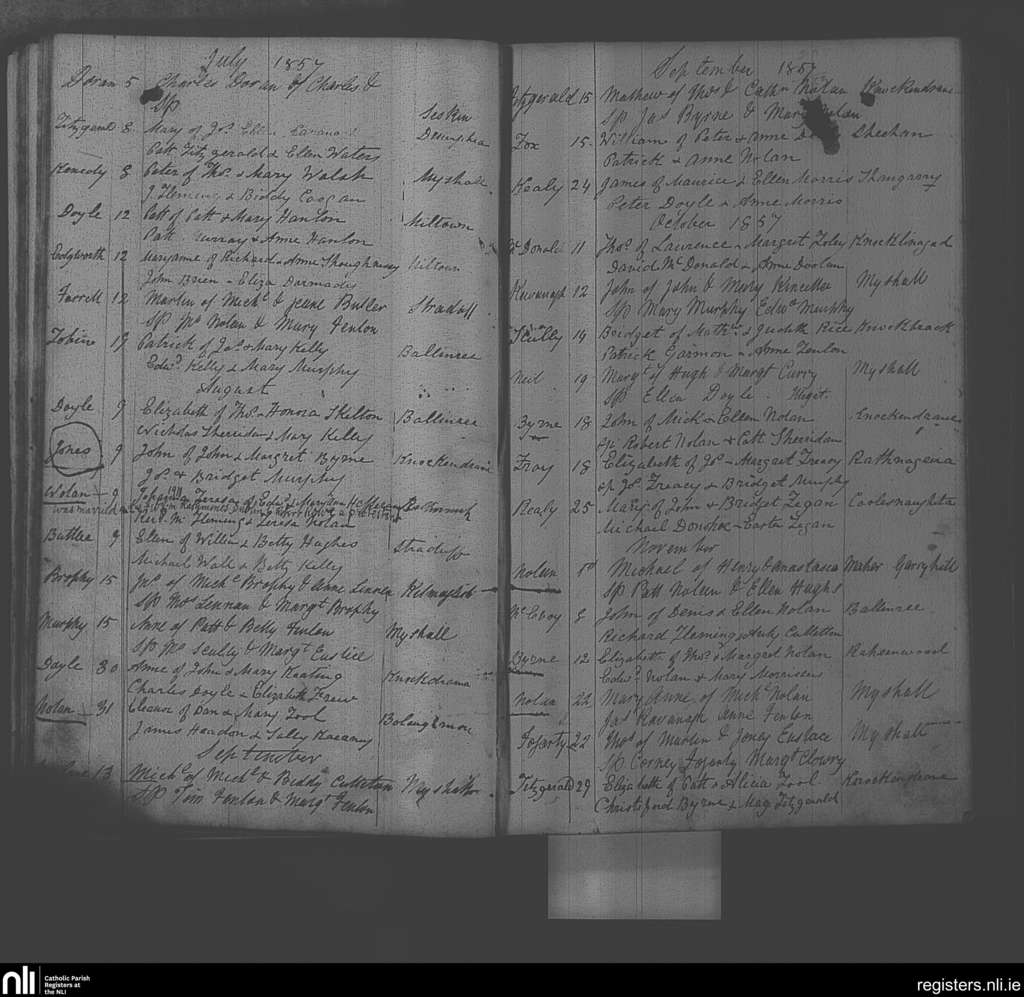 July 1857
Doran 5 Charles Doran of Charles &
Sp Seskin
Fitzgerald 8 Mary of Jos. Ellen
Patt Fitzgerald & Ellen Waters
Kenedy 8 Peter of Thos. & Mary Walsh Myshall
J. Fleming & Biddy Coogan
Doyle 12 Patt of Patt & Mary Hanlon Miltown
Patt Murray & Anne Hanlon
12 Maryanne of Richard & Anne Shoughnessy Miltown
John Brien & Eliza
Farrell 12 Martin of Michl. & Jeane Butler
Sp Jas Nolan & Mary Fenlon
Tobin 19 Patrick of Jas. & Mary Kelly Ballinree
Edwd. Kelly & Mary Murphy
August
Doyle 9 Elizabeth of Thos. Honora Skelton Ballinree
Nicholas Sherridan & Mary Kelly
Jones 9 John of John & Margret Byrne Knockendrane
Jos. & Bridget Murphy
Nolan 9 Teresa of Edwd. &
was married
Revd. Mr. Fleming & Teresa Nolan
Butler 9 Ellen of Willm & Betty Hughes
Michael Wall & Betty Kelly
Brophy 15 Jas of Michl. Brophy & Anne Lennen
Sp Thos Lennan & Margt. Brophy
Murphy 15 Anne of Patt & Betty Fenlon Myshall
Sp Jas Scully & Margt. Eustice
Doyle 30 Anne of John & Mary Keating
Charles Doyle & Elizabeth
Nolan 31 Eleanor of Dan & Mary Tool
James & Sally
September
13 Michl. of Michl. & Biddy Myshall
Sp Tim Fenlon & Margt Fenlon
September 1857
Fitzgerald 15 Mathew of Thos & Cathn Nolan Knockendrane
Sp Jas Byrne & Mary Nolan
Fox 15 William of Peter & Anne Sheehan
Patrick & Anne Nolan
Healy 24 James of Maurice & Ellen Morris
Peter Doyle & Anne Morris
October 1857
Mc Donald 11 Thos. of Lawrence & Margret Foley
David McDonald & Anne Doolan
Kavanagh 12 John of John & Mary Kincella Myshall
Sp Mary Murphy Edwd Murphy
Scully 14 Bridget of Mathw. & Judith Rice Knockbrack
Patrick & Anne Fenlon
Neil 19 Margt of Hugh & Margt Curry Myshall
Sp Ellen Doyle
Byrne 18 John of Mick & Ellen Nolan Knockendrane
sp Robert Nolan & Catt Sherridan
18 Elizabeth of Jos. & Margret Treacy
sp Jos. Treacy & Bridget Murphy
Healy 25 Mary of John & Bridget
Michael Donohoe
November
Nolen Michael of Henry & Anastasia Maher Garryhill
Sp Patt Nolen & Ellen Hughs
McEvoy 8 John of Denis & Ellen Nolan Ballinree
Richard Fleming & Judy
Byrne 12 Elizabeth of Thos. & Margret Nolan Raheenwood
Edwd. Nolan & Mary
Nolan 22 Mary Anne of Michl Nolan Myshall
Jas Kavanagh Anne Fenlon
Fogarty 22 Thos. of Martin & Joney Eustace Myshall
Sp Corney Fogarty Margt Clowry
Fitzgerald 29 Elizabeth of Patt & Alicia Tool Knockendrane
Christopher Byrne & Mag Fitzgerald
nli
Catholic Parish
Registers at
the NLI
registers.nli.ie